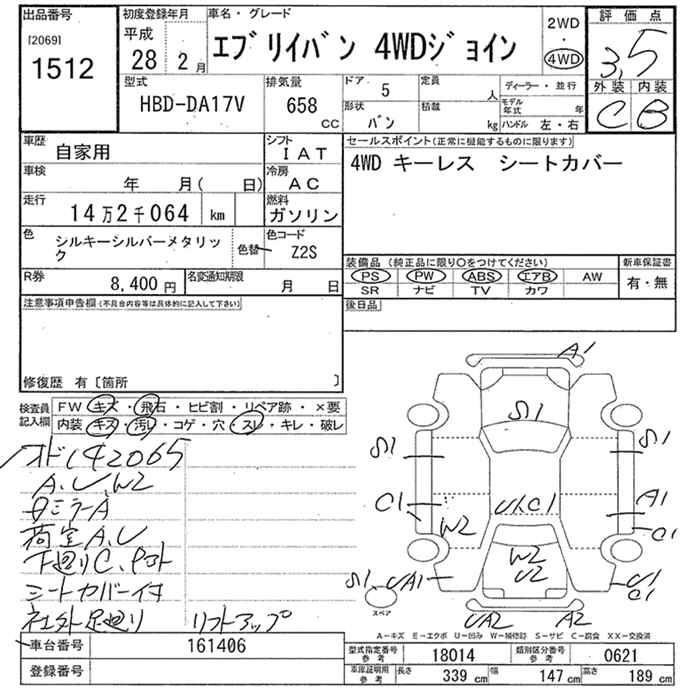 出品番号
[2069]
1512
初度登録年月
平成
28 2月
車名・グレード
エブリイバン 4WDジョイン
2WD
・
4WD
評価点
3,5
外装 内装
C B
型式
HBD-DA17V
排気量
658
cc
ドア 5
定員 人
形状 バン
積載 kg
ディーラー・並行
モデル年式 年
ハンドル 左・右
車歴
自家用
シフト
IAT
車検
年 月( 日)
冷房
AC
走行
14万2千064 km
燃料
ガソリン
色
シルキーシルバーメタリック
色替
色コード
Z2S
R券
8,400円
名変通知期限
月 日
セールスポイント(正常に機能するものに限ります)
4WD キーレス シートカバー
装備品(純正品に限り○をつけてください)
PS PW ABS エアB AW
SR ナビ TV カワ
新車保証書
有・無
後日品
注意事項申告欄(不具合内容等は具体的に記入して下さい)
修復歴 有〔箇所 〕
検査員記入欄
FW キズ・飛石・ヒビ割・リペア跡・×要
内装 キズ・汚レ・コゲ・穴・スレ・キレ・破レ
オド142065
A、U、W2
日ミラーA
荷室A、U
下廻りC、
シートカバー付
社外足廻り リフトアップ
A1
S1
S1
S1
C1
A1
U1C1
W2
C1
W2
U2
S1
UA1
U1
C1
スペア
UA2
A2
A-キズ E-エクボ U-凹み W-補修跡 S-サビ C-腐食 XX-交換済
車台番号
161406
登録番号
型式指定番号参考
18014
類別区分番号参考
0621
車庫証明用参考
長さ 339 cm
幅 147 cm
高さ 189 cm